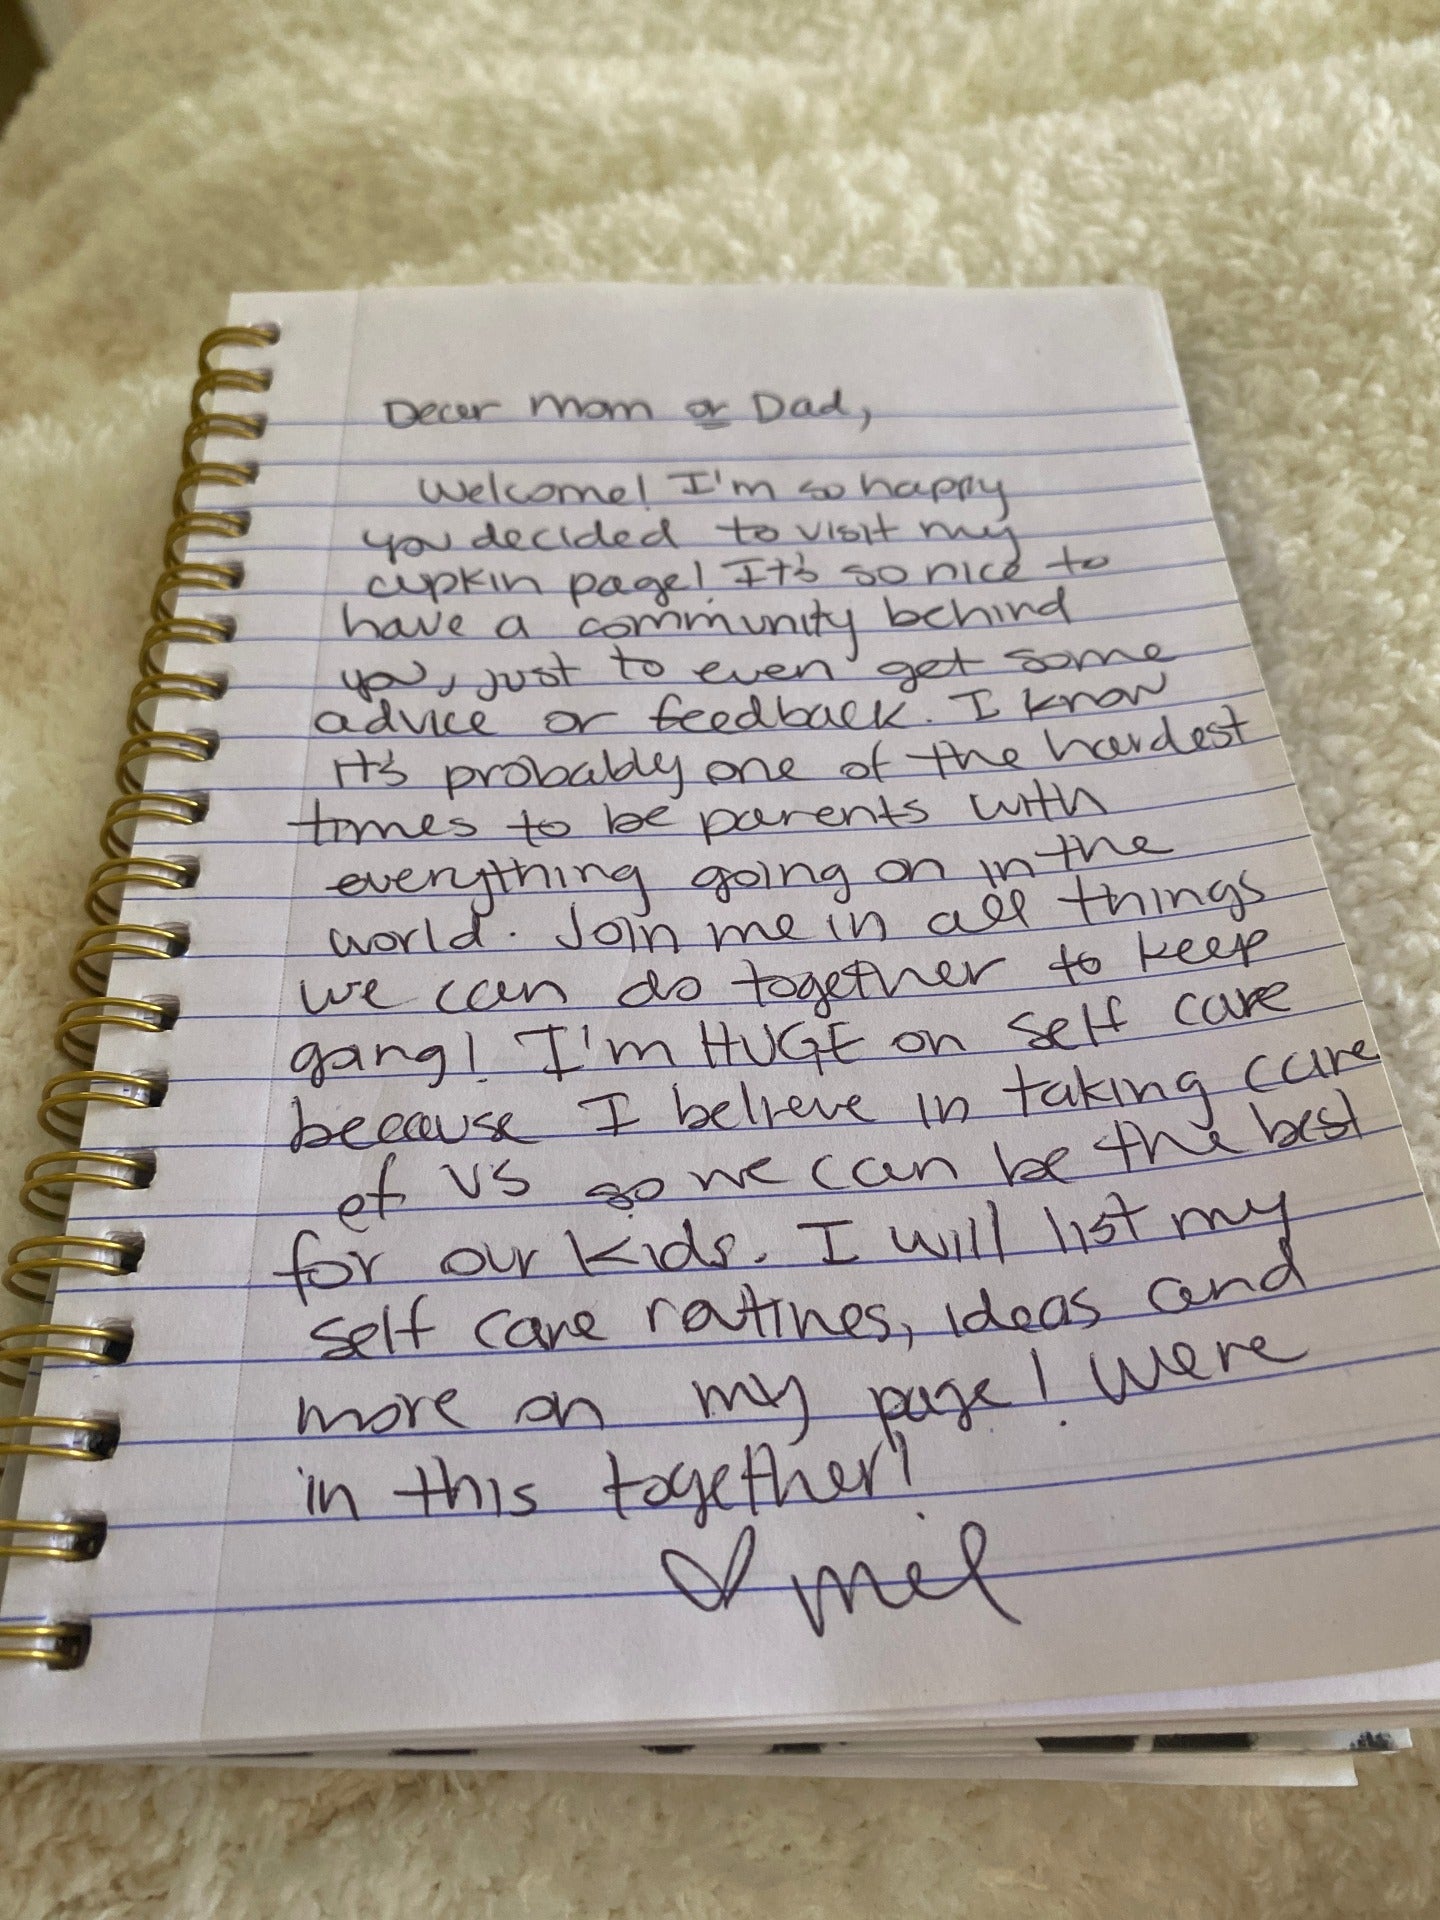 Dear Mom or Dad,
Welcome! I'm so happy
you decided to visit my
cupkin page! It's so nice to
have a community behind
you, just to even get some
advice or feedback. I know
it's probably one of the hardest
times to be parents with
everything going on in the
world. Join me in all things
we can do together to keep
gang! I'm HUGE on self care
because I believe in taking care
of us so we can be the best
for our kids. I will list my
self care routines, ideas and
more on my page! Were
in this together!
♡ mel